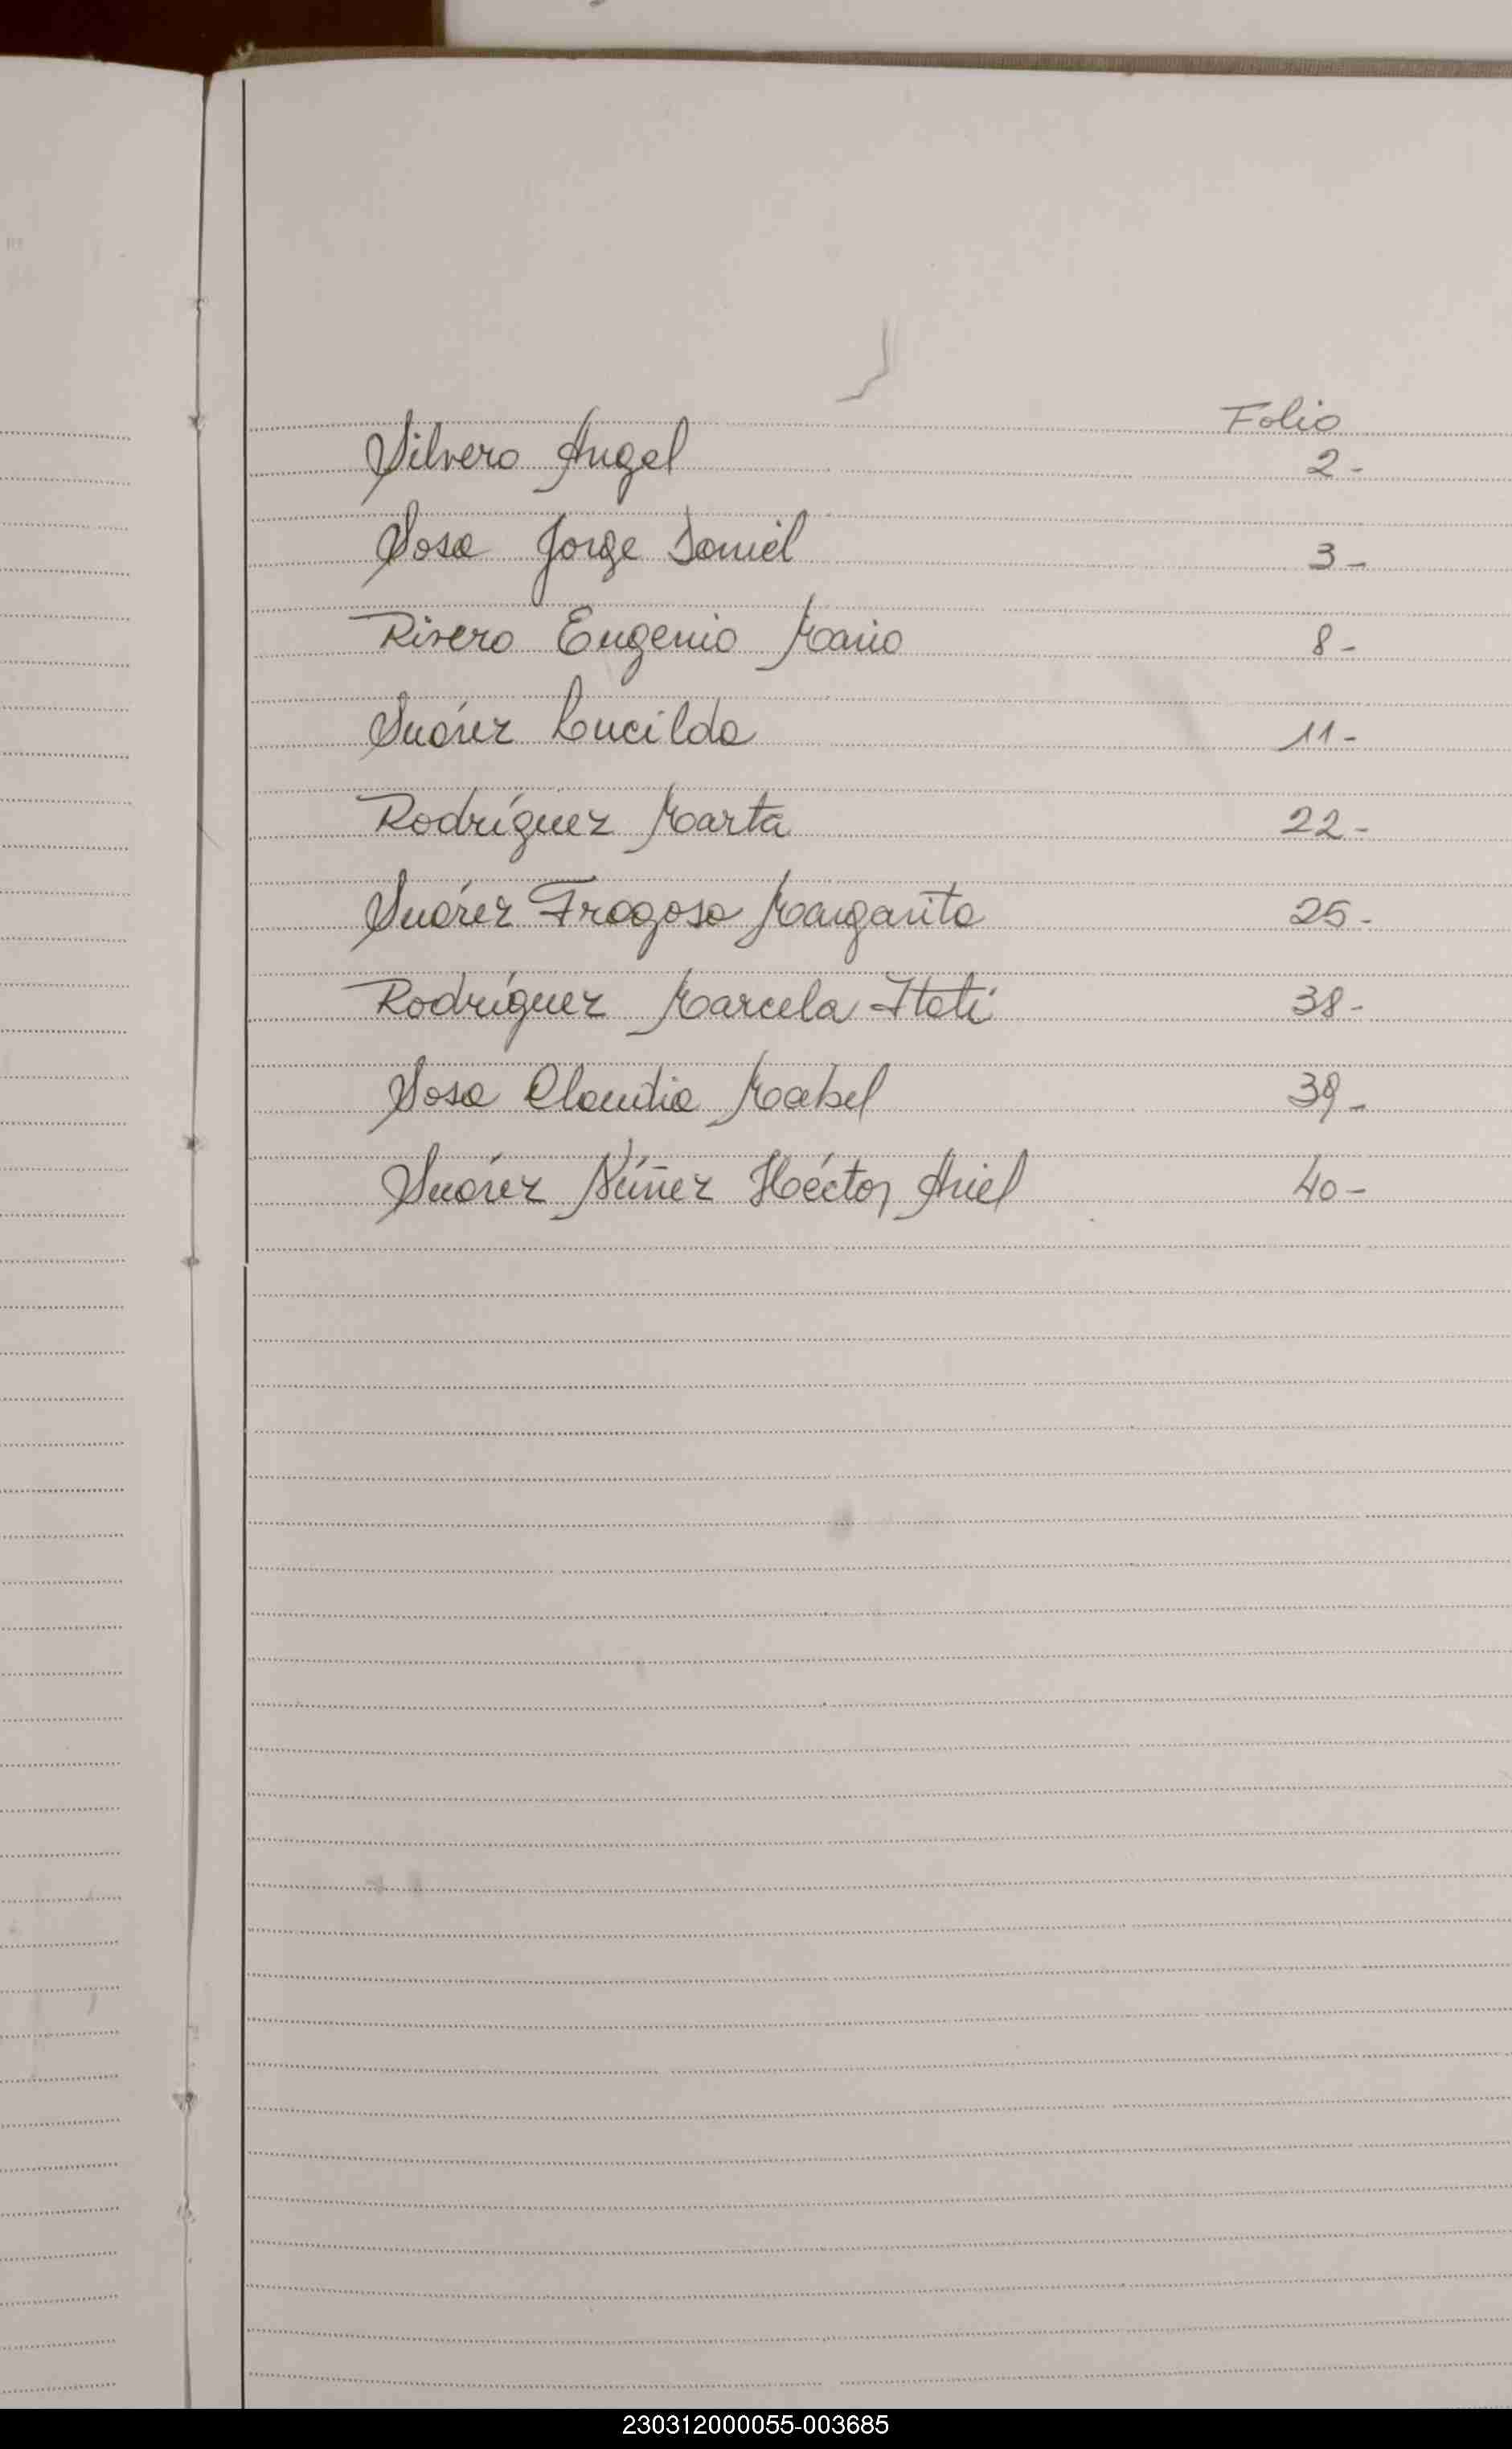 Folio
Silvero Angel 2-
Sosa Jorge Daniel 3-
Rivero Eugenio Mario 8-
Suárez Lucilda 11-
Rodríguez Marta 22-
Suárez Fragoso Margarita 25-
Rodríguez Marcela Itatí 38-
Sosa Claudia Mabel 39-
Suárez Núñez Héctor Ariel 40-
230312000055-003685